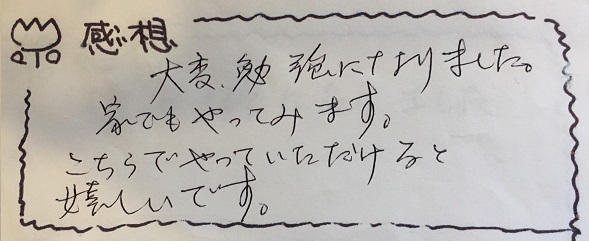 感想
大変、勉強になりました。
家でもやってみます。
こちらでやっていただけると
嬉しいです。